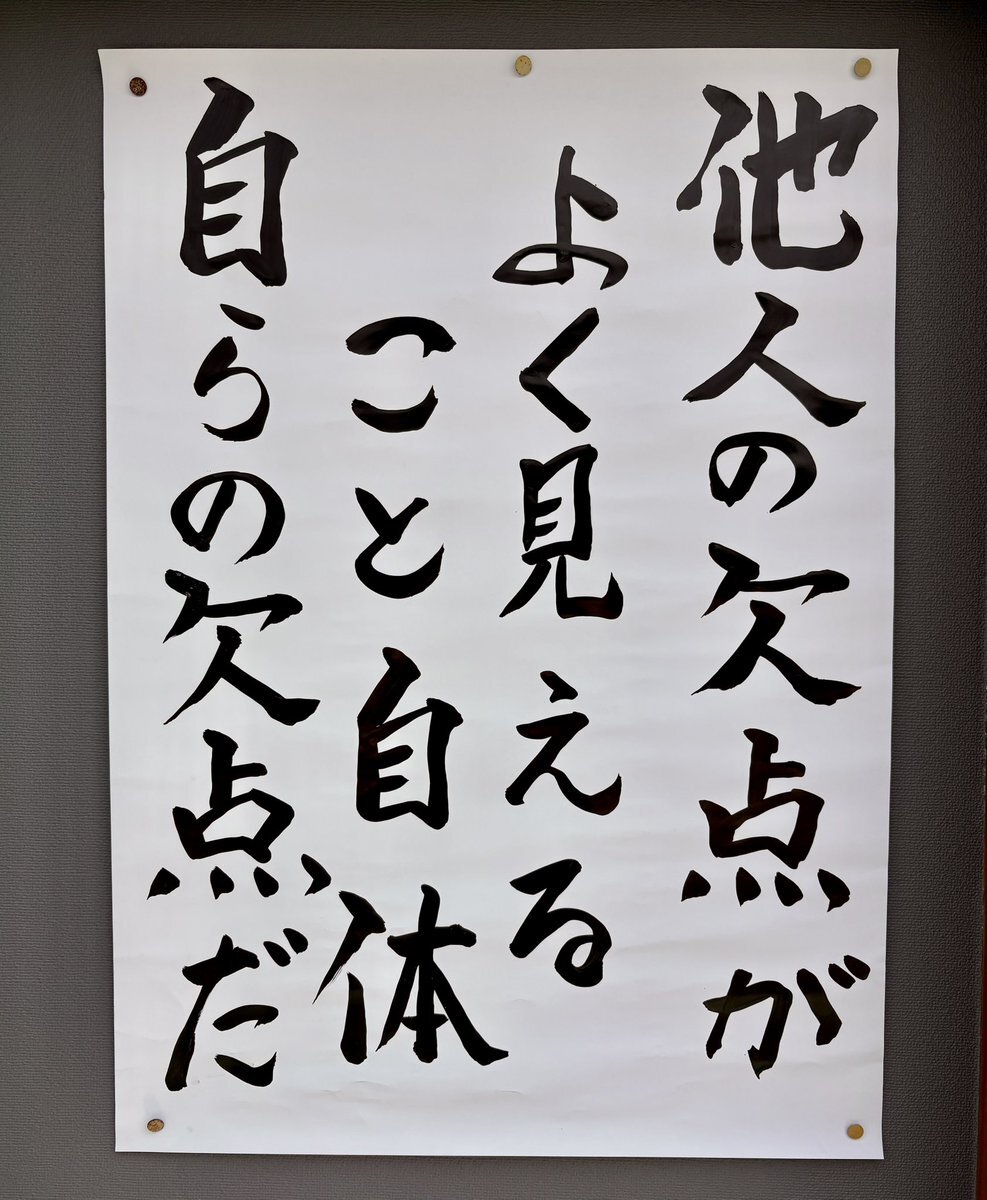 他人の欠点が
よく見える
こと自体
自らの欠点だ